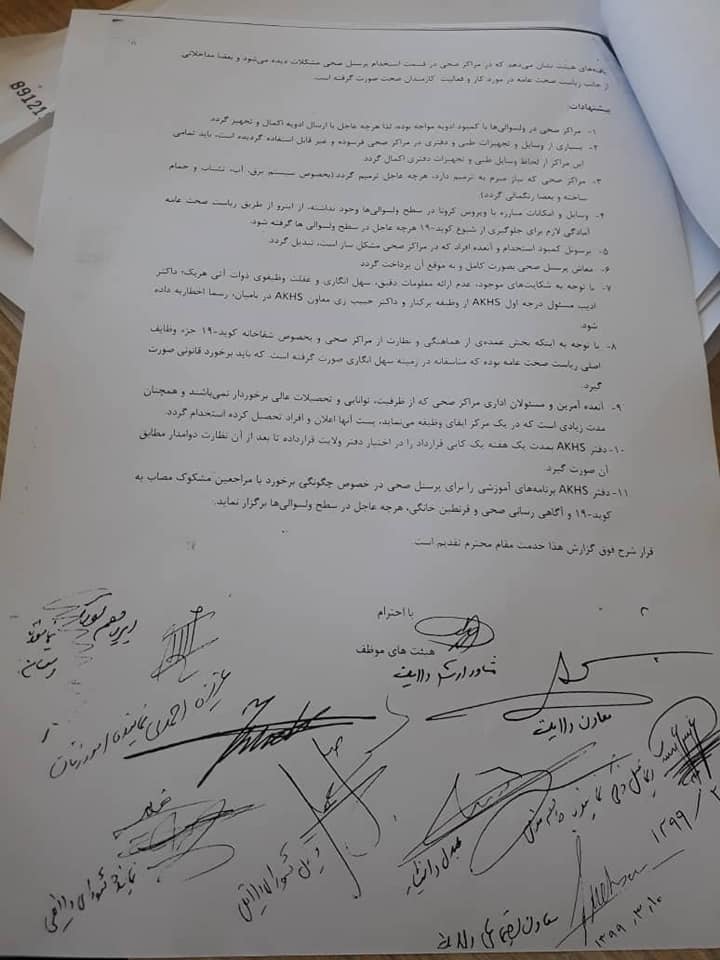 یافته‌های هیئت نشان می‌دهد که در مراکز صحی در قسمت استخدام پرسنل صحی مشکلات دیده می‌شود و بعضا مداخلاتی
از جانب ریاست صحت عامه در مورد کار و فعالیت کارمندان صحت صورت گرفته است.
89121
پیشنهادات
۱- مراکز صحی در ولسوالی‌ها با کمبود ادویه مواجه بوده، لذا هرچه عاجل با ارسال ادویه اکمال و تجهیز گردد
۲- بسیاری از وسایل و تجهیزات طبی و دفتری در مراکز صحی فرسوده و غیر قابل استفاده گردیده است، باید تمامی
این مراکز از لحاظ وسایل طبی و تجهیزات دفتری اکمال گردد
۳- مراکز صحی که نیاز مبرم به ترمیم دارد، هرچه عاجل ترمیم گردد (بخصوص سیستم برق، آب، تشناب و حمام
ساخته و بعضا رنگمالی گردد)
۴- وسایل و امکانات مبارزه با ویروس کرونا در سطح ولسوالی‌ها وجود نداشته، از اینرو از طریق ریاست صحت عامه
آمادگی لازم برای جلوگیری از شیوع کوید-۱۹ هرچه عاجل در سطح ولسوالی ها گرفته شود.
۵- پرسونل کمبود استخدام و آنعده افراد که در مراکز صحی مشکل ساز است، تبدیل گردد.
۶- معاش پرسنل صحی بصورت کامل و به موقع آن پرداخت گردد
۷- با توجه به شکایت‌های موجود، عدم ارائه معلومات دقیق، سهل انگاری و غفلت وظیفوی ذوات آتی هریک؛ داکتر
ادیب مسئول درجه اول AKHS از وظیفه برکنار و داکتر حبیب زی معاون AKHS در بامیان، رسما اخطاریه داده
شود.
۸- با توجه به اینکه بخش عمده‌ی از هماهنگی و نظارت از مراکز صحی و بخصوص شفاخانه کوید-۱۹ جزء وظایف
اصلی ریاست صحت عامه بوده که متاسفانه در زمینه سهل انگاری صورت گرفته است. که باید برخورد قانونی صورت
گیرد.
۹- آنعده آمرین و مسئولان اداری مراکز صحی که از ظرفیت، توانایی و تحصیلات عالی برخوردار نمی‌باشند و همچنان
مدت زیادی است که در یک مرکز ایفای وظیفه می‌نماید، پست آنها اعلان و افراد تحصیل کرده استخدام گردد.
۱۰- دفتر AKHS بمدت یک هفته یک کاپی قرارداد را در اختیار دفتر ولایت قرارداده تا بعد از آن نظارت دوامدار مطابق
آن صورت گیرد.
۱۱- دفتر AKHS برنامه‌های آموزشی را برای پرسنل صحی در خصوص چگونگی برخورد با مراجعین مشکوک مصاب به
کوید-۱۹ و آگاهی رسانی صحی و قرنطین خانگی، هرچه عاجل در سطح ولسوالی‌ها برگزار نماید.
قرار شرح فوق گزارش هذا خدمت مقام محترم تقدیم است.
با احترام
هیئت های موظف
مشاور ارشد ولایت
معاون ولایت
نماینده امور زنان
۱۳۹۹
وکیل شورای ولایتی
نماینده شورای ولایتی
معاون اجتماعی ولایت
۱۳۹۹.۳.۱۰